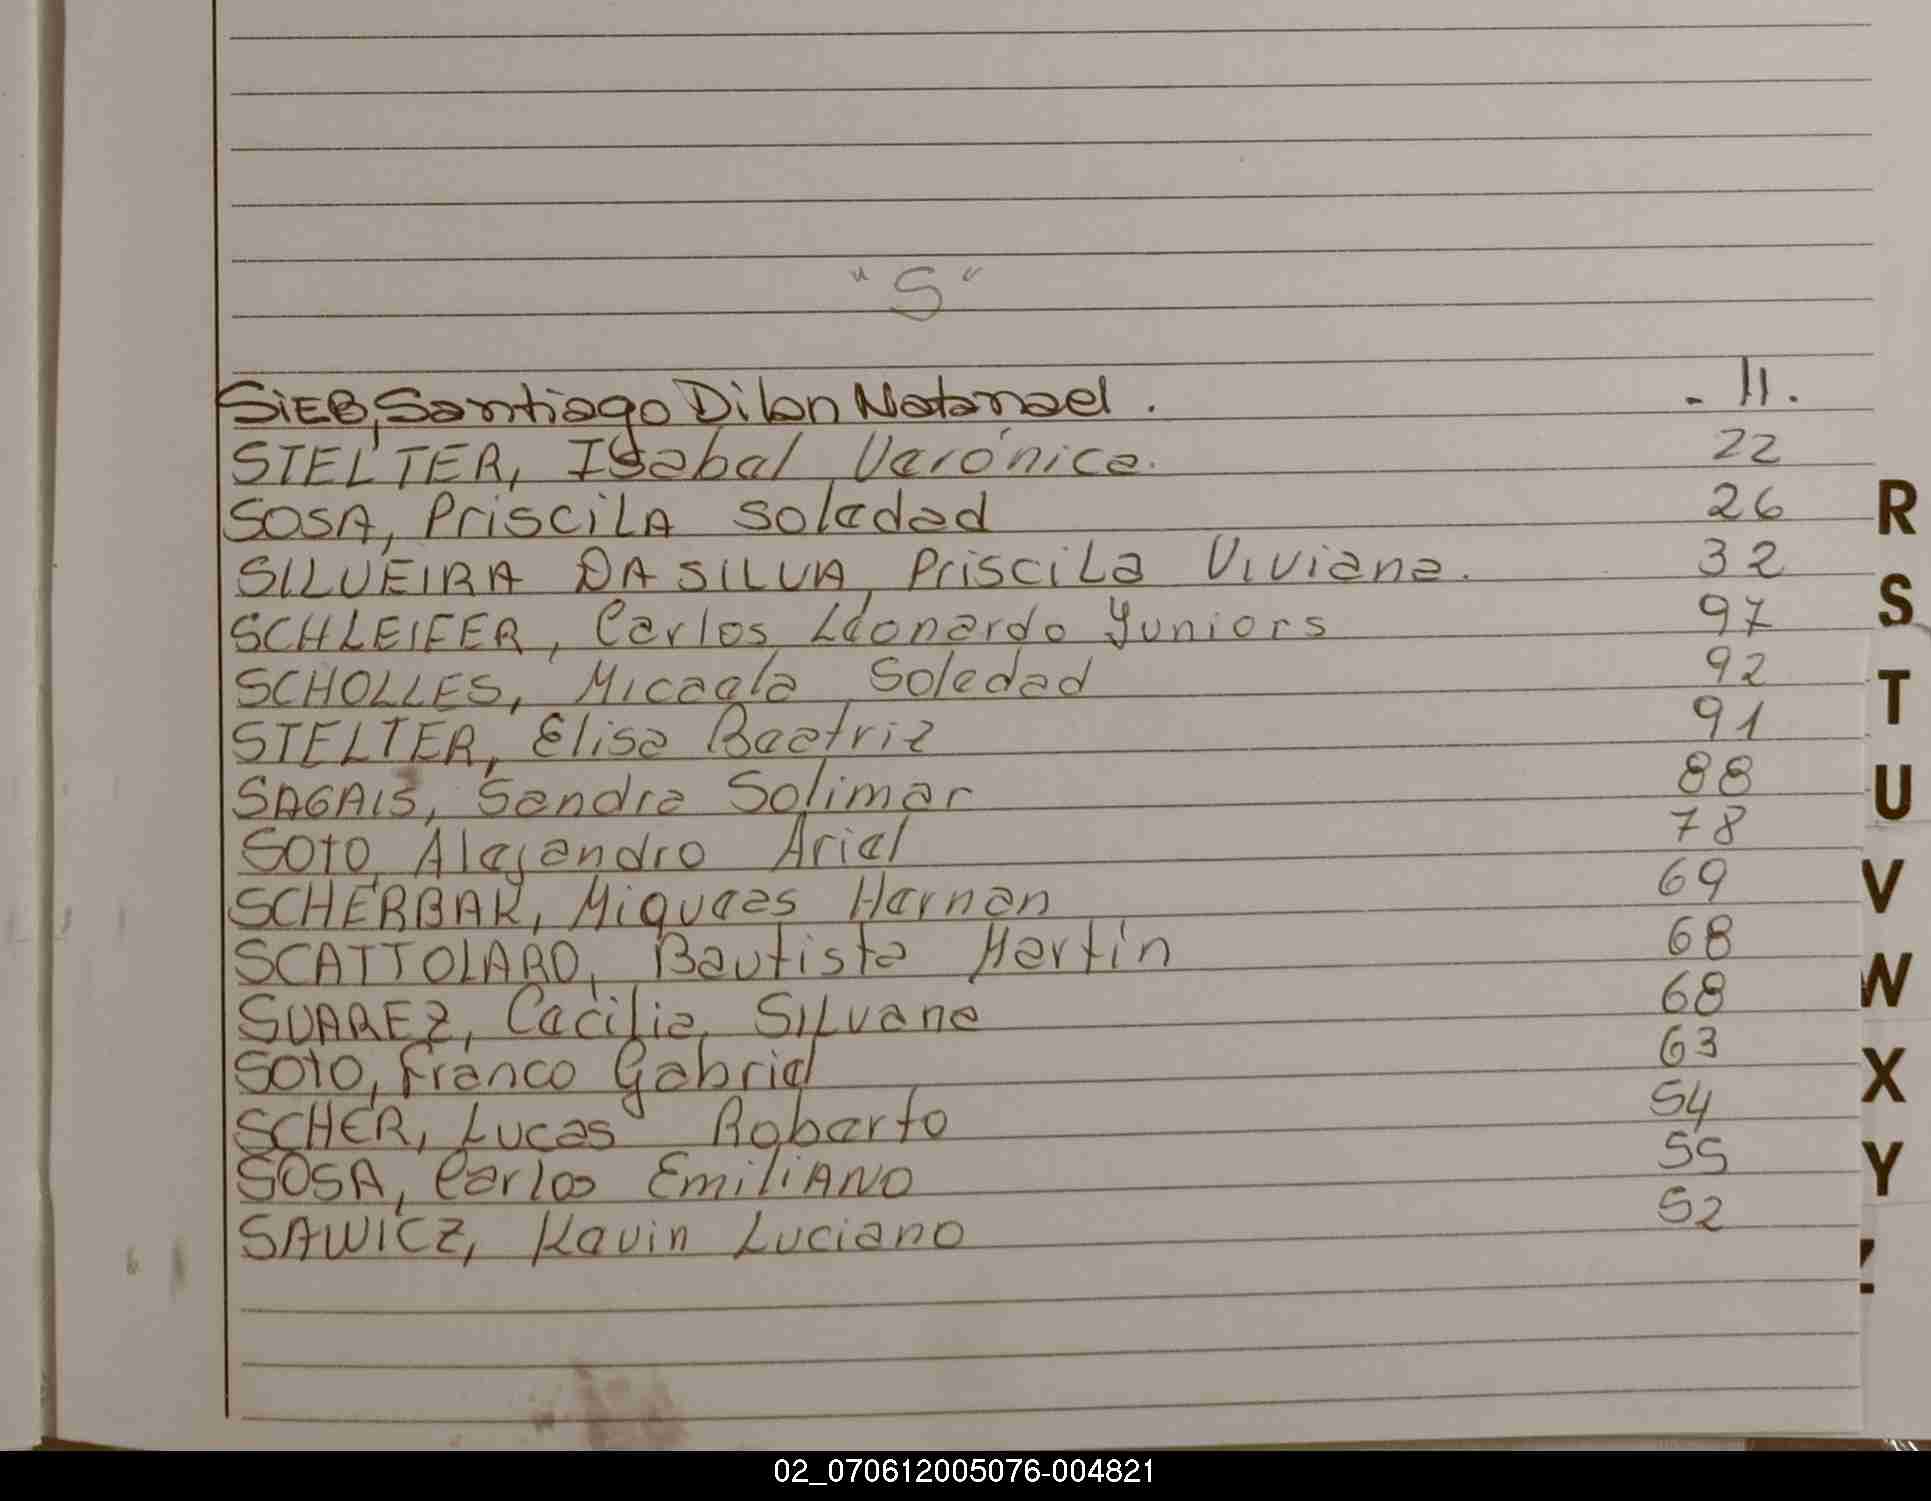 "S"
SIEB, Santiago Dilan Natanael. - 11.
STELTER, Isabel Verónica. 22
SOSA, Priscila Soledad 26
SILVEIRA DA SILVA, Priscila Viviana. 32
SCHLEIFER, Carlos Leonardo Yuniors 97
SCHOLLES, Micaela Soledad 92
STELTER, Elisa Beatriz 91
SAGAIS, Sandra Solimar 88
SOTO, Alejandro Ariel 78
SCHERBAK, Miqueas Hernan 69
SCATTOLARO, Bautista Martín 68
SUAREZ, Cecilia Silvana 68
SOTO, Franco Gabriel 63
SCHER, Lucas Roberto 54
SOSA, Carlos EmiliANO 55
SAWICZ, Kevin Luciano 52
R
S
T
U
V
W
X
Y
Z
02_070612005076-004821